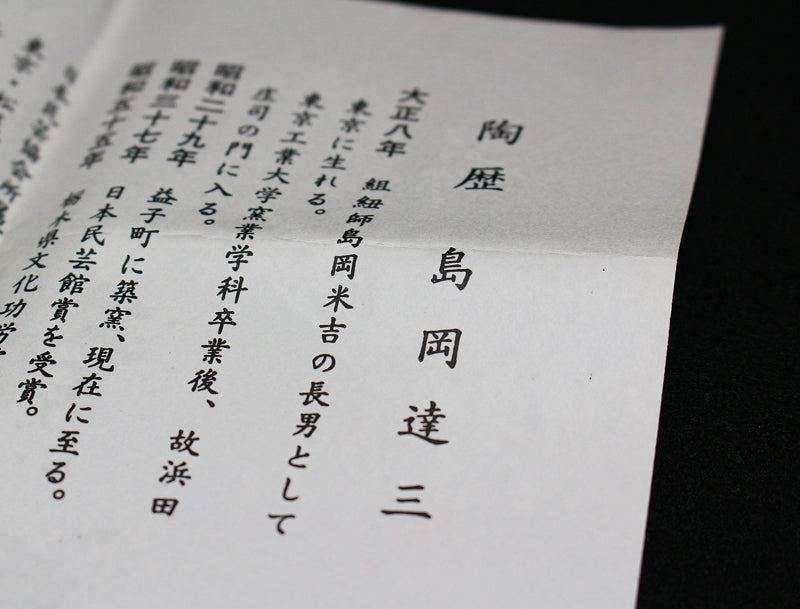 陶歴 島岡達三
大正八年 組紐師島岡米吉の長男として
東京に生れる。
東京工業大学窯業学科卒業後、故浜田
庄司の門に入る。
昭和二十九年 益子町に築窯、現在に至る。
昭和三十七年 日本民芸館賞を受賞。
昭和五十五年 栃木県文化功労
日本民芸協会所属
東京・松